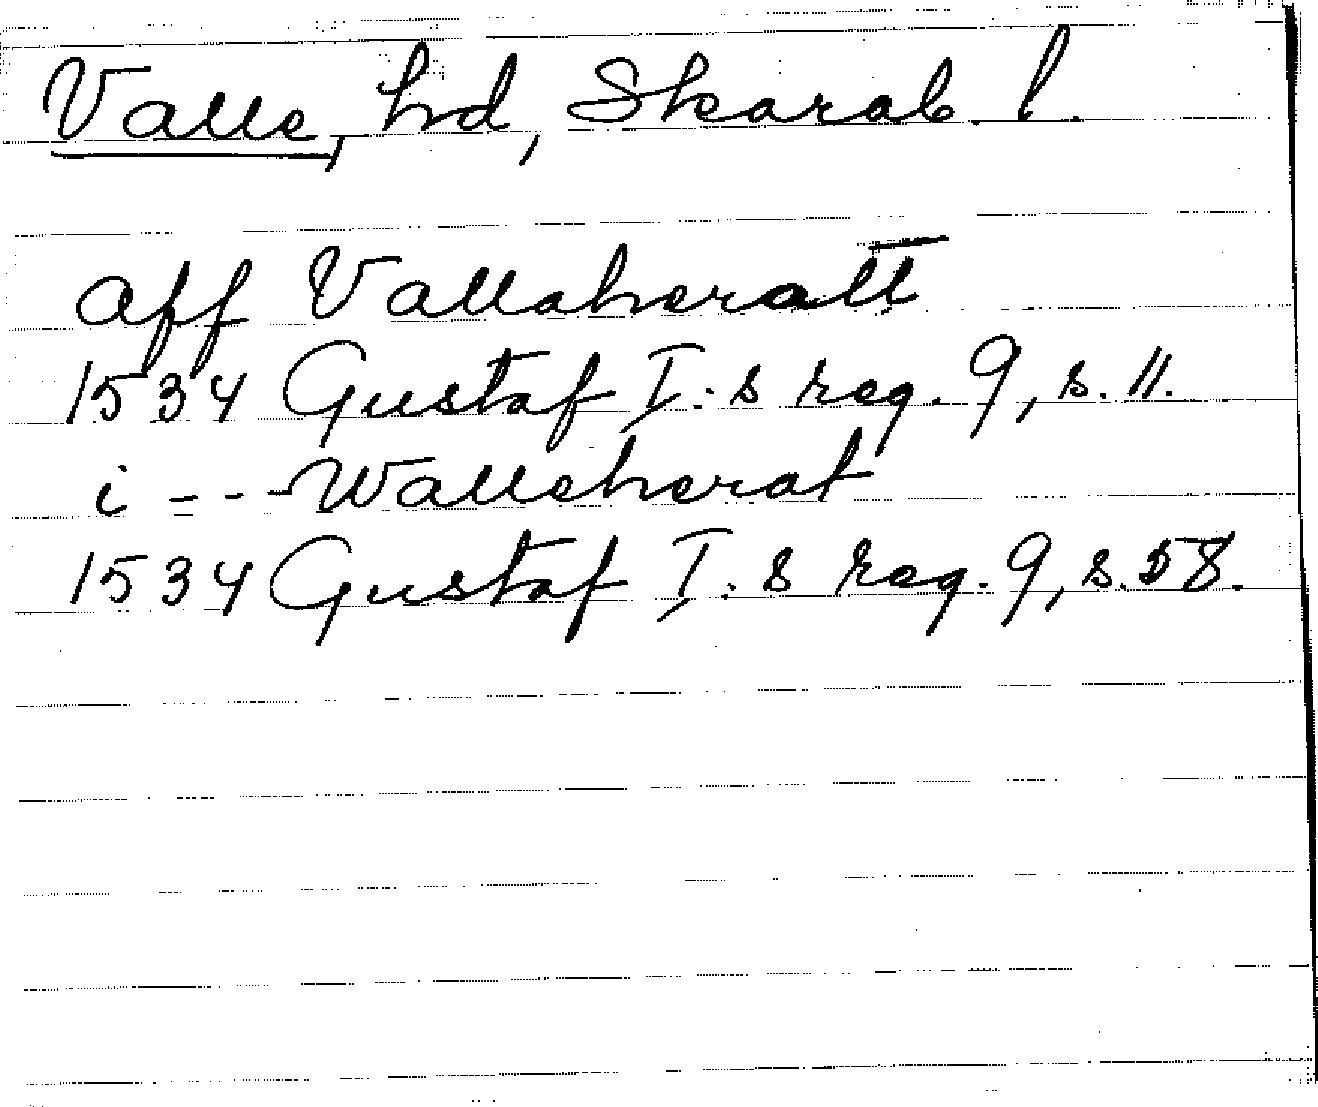 Valle, hd, Skarab. l.
aff Vallaheratt
1534 Gustaf I:s reg. 9, s. 11.
i --- Walleherat
1534 Gustaf I:s reg. 9, s. 58.